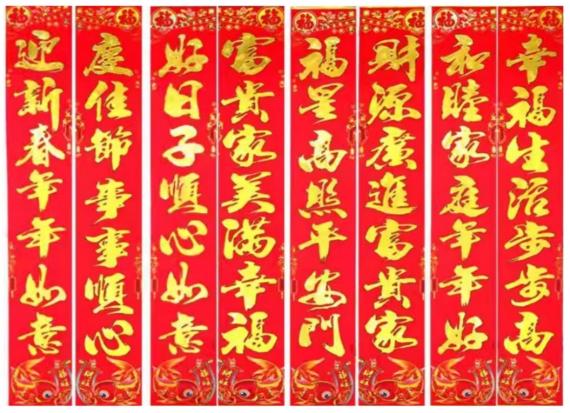 福 福 福 福 福 福 福 福
迎新春年年如意
慶佳節事事順心
好日子順心如意
富貴家美滿幸福
福星高照平安門
財源廣進富貴家
和睦家庭年年好
幸福生活步步高